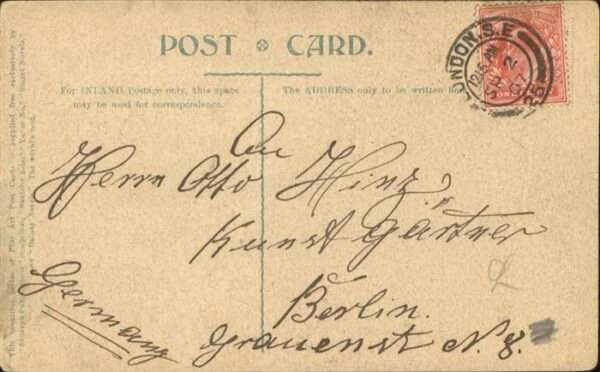 POST CARD.
For INLAND Postage only, this space may be used for correspondence.
The ADDRESS only to be written here
LONDON. S.E
An
Herrn Otto Hinz,
Kunst Gärtner
Berlin.
Grauenst N. 8.
Germany